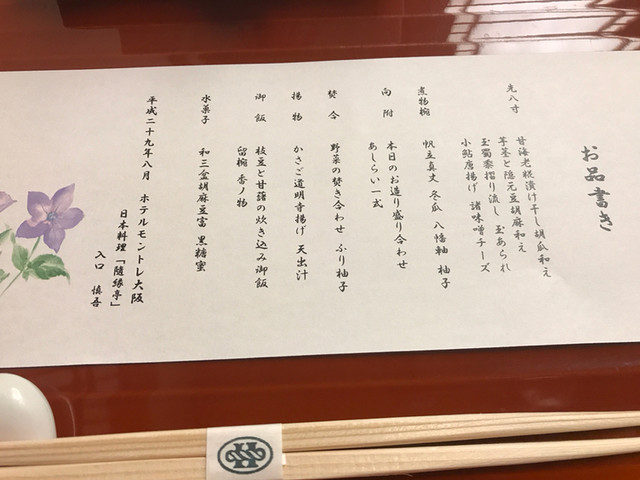 お品書き
先八寸
甘海老糀漬け干し胡瓜和え
芋茎と隠元豆胡麻和え
玉蜀黍摺り流し 玉あられ
小鮎唐揚げ 諸味噌チーズ
煮物椀 帆立真丈 冬瓜 八幡軸 柚子
向附 本日のお造り盛り合わせ
あしらい一式
焚合 野菜の焚き合わせ ふり柚子
揚物 かさご道明寺揚げ 天出汁
御飯 枝豆と甘藷の炊き込み御飯
留椀 香ノ物
水菓子 和三盆胡麻豆富 黒糖蜜
平成二十九年八月 ホテルモントレ大阪
日本料理「隨縁亭」
入口 慎吾